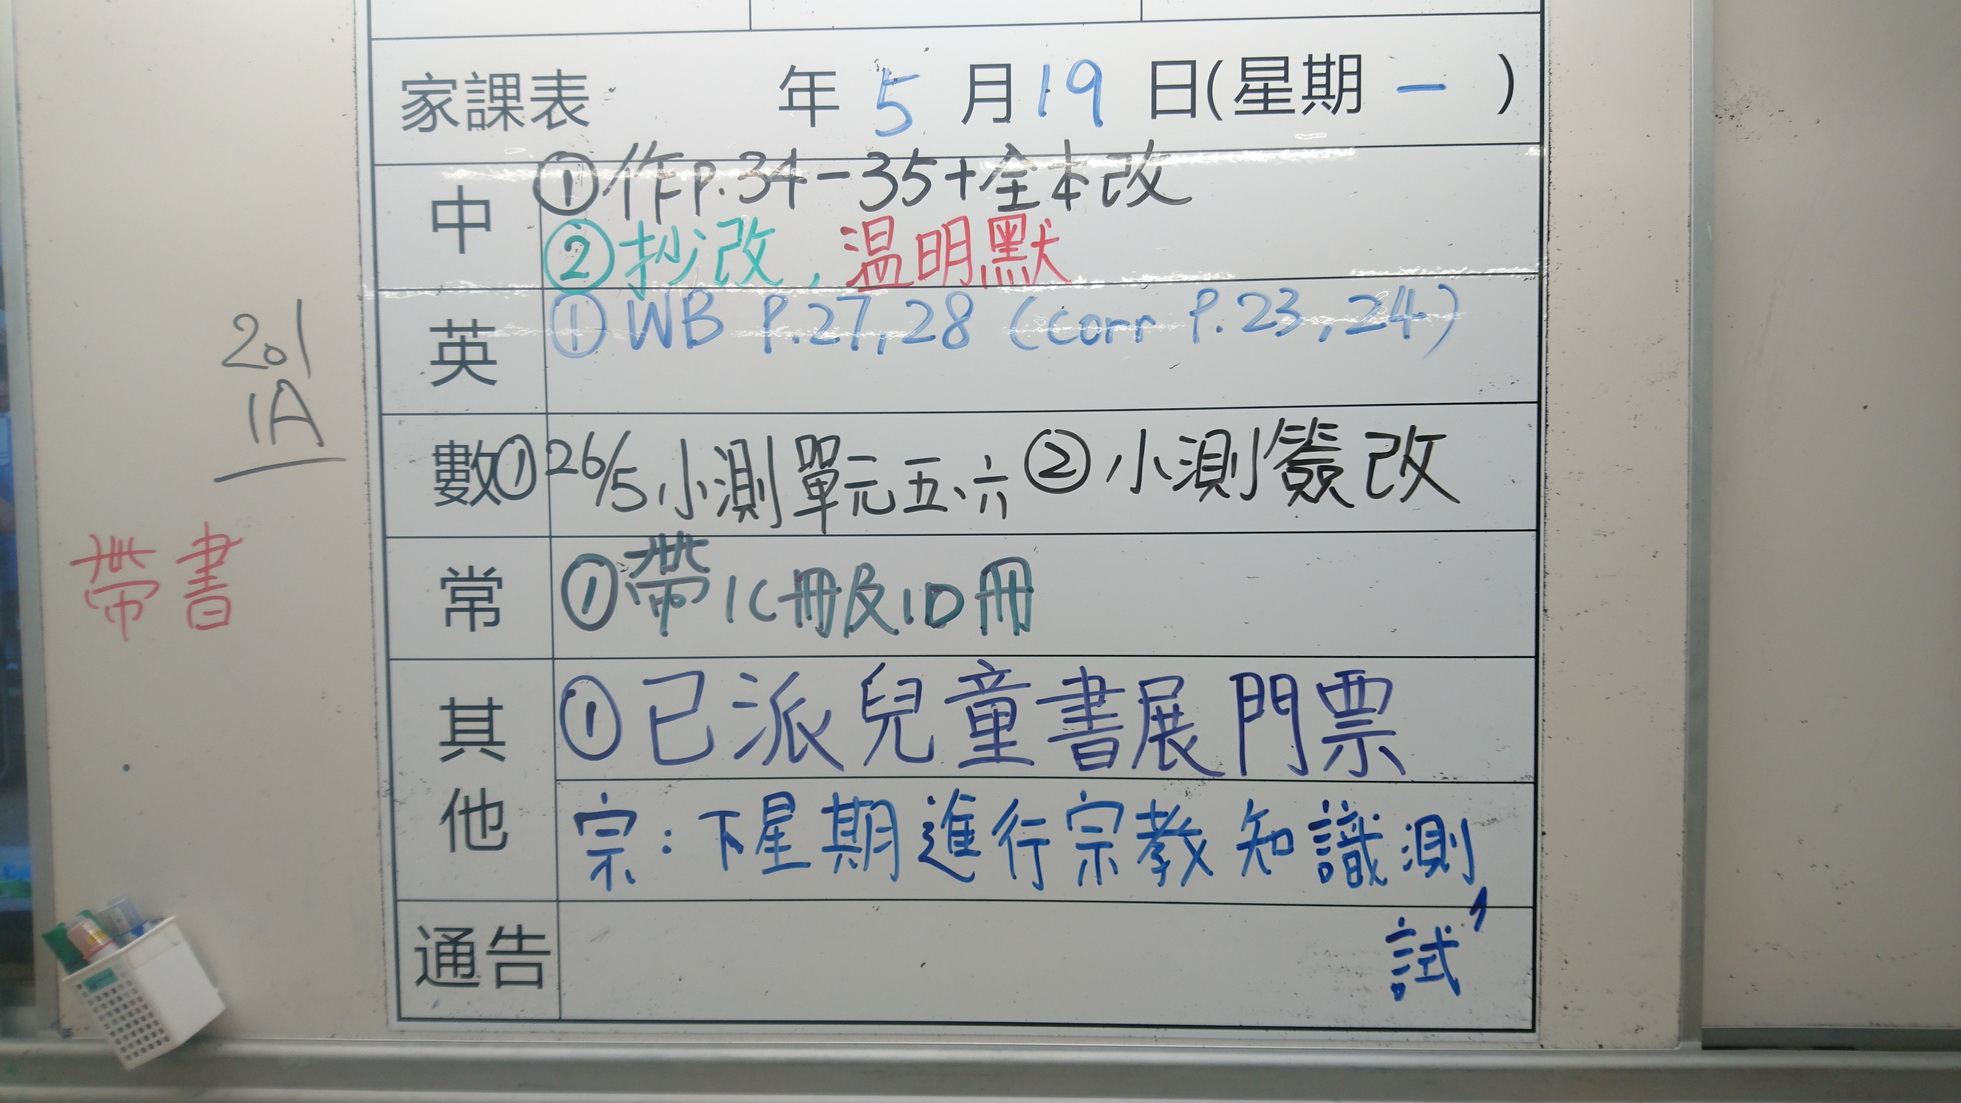 家課表 年 5 月 19 日(星期 一 )
中 ①作P.34-35+全本改
②抄改,温明默
英 ① WB P.27,28 (corr P.23,24)
數 ①26/5小測單元五、六 ②小測簽改
常 ①帶1C冊及1D冊
其他 ①已派兒童書展門票
宗:下星期進行宗教知識測
試
通告
201
1A
帶書